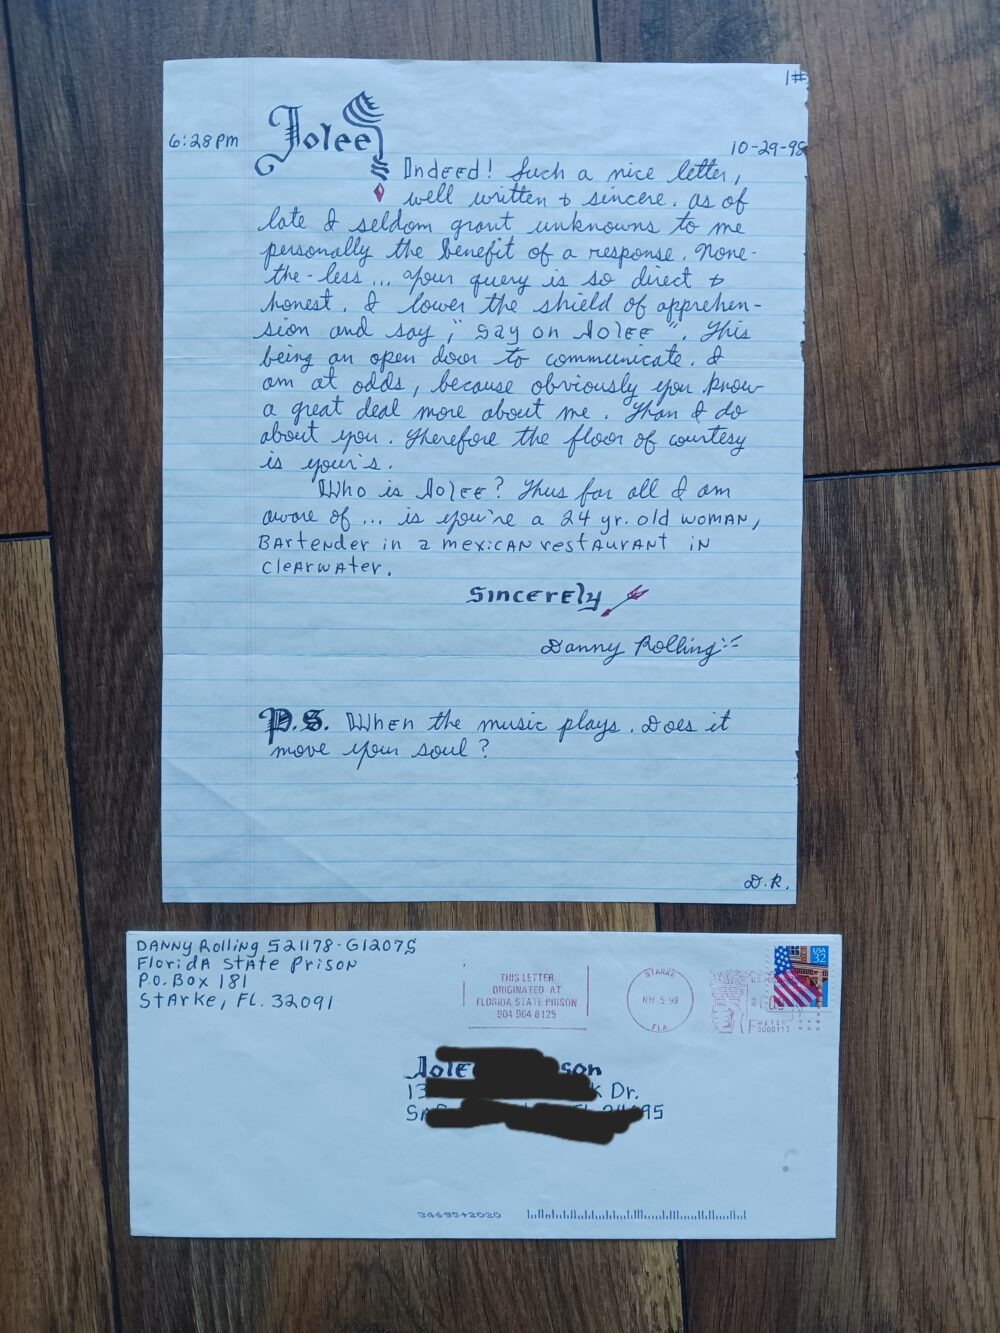 1#
6:28pm
Jolee
10-29-98
Indeed! Such a nice letter,
well written & sincere. as of
late I seldom grant unknowns to me
personally the benefit of a response. None-
the-less... your query is so direct &
honest. I lower the shield of apprehen-
sion and say, "say on Jolee". This
being an open door to communicate. I
am at odds, because obviously you know
a great deal more about me. Than I do
about you. Therefore the floor of courtesy
is your's.
Who is Jolee? Thus far all I am
aware of... is you're a 24 yr. old woman,
Bartender in a mexican restaurant in
Clearwater.
Sincerely
Danny Rolling
P.S. When the music plays. Does it
move your soul?
D.R.
Danny Rolling 521178-G1207S
Florida State Prison
P.O. Box 181
Starke, FL. 32091
THIS LETTER
ORIGINATED AT
FLORIDA STATE PRISON
904 964 8125
STARKE
NOV 5 98
FLA
USA
32
Jole son
13 k Dr.
34695+2020